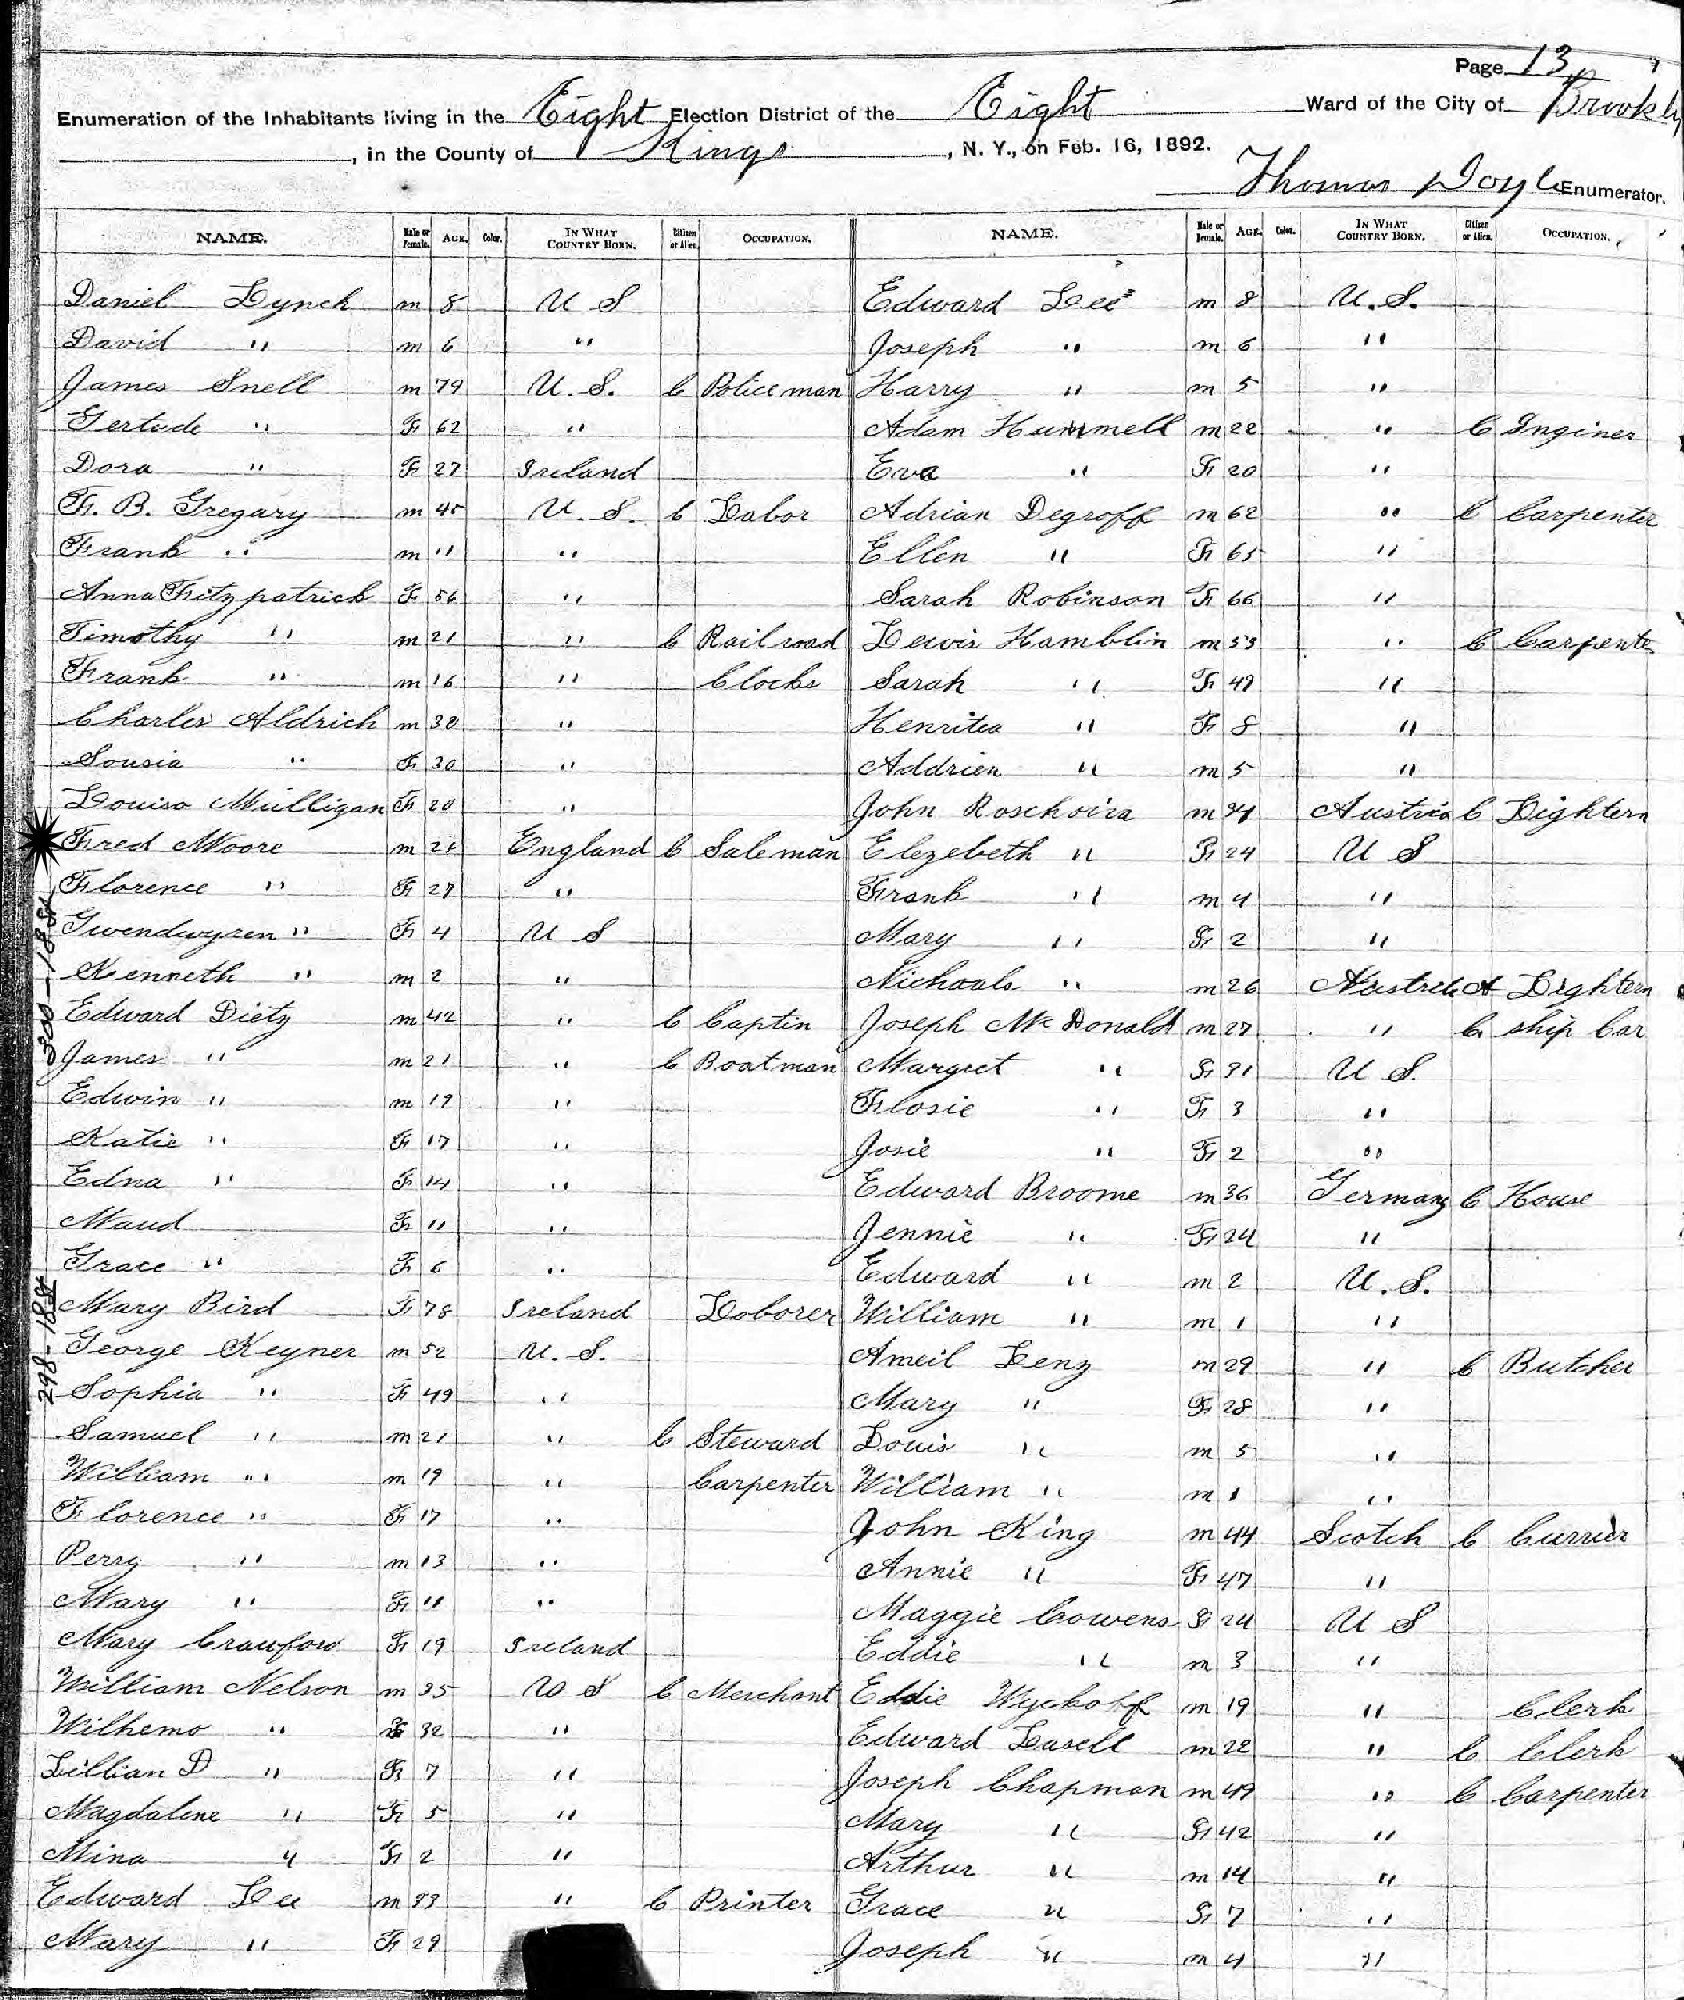 Page 13
Enumeration of the Inhabitants living in the Eight Election District of the Eight Ward of the City of Brooklyn
, in the County of Kings, N. Y., on Feb. 16, 1892.
Thomas Doyle Enumerator.
NAME. Male or Female. AGE. Color. IN WHAT COUNTRY BORN. Citizen or Alien. OCCUPATION.
Daniel Lynch m 8 U S
David " m 6 "
James Snell m 79 U. S. C Police man
Gertude " F 62 "
Dora " F 27 Ireland
F. B. Gregary m 45 U. S. C Labor
Frank " m 11 "
Anna Fitzpatrick F 56 "
Timothy " m 21 " C Rail road
Frank " m 16 " Clocks
Charles Aldrich m 30 "
Sousia " F 30 "
Louisa Mulligan F 20 "
Fred Moore m 28 England C Saleman
Florence " F 27 "
Gwendwyren " F 4 U S
Kenneth " m 2 "
Edward Dietz m 42 " C Captin
James " m 21 " C Boatman
Edwin " m 19 "
Katie " F 17 "
Edna " F 14 "
Maud F 11 "
Grace " F 6 "
Mary Bird F 78 Ireland Laborer
George Keyner m 52 U. S.
Sophia " F 49 "
Samuel " m 21 " C Steward
William " m 19 " Carpenter
Florence " F 17 "
Perry " m 13 "
Mary " F 11 "
Mary Crawford F 19 Ireland
William Nelson m 35 U S C Merchant
Wilhemo " F 32 "
Lillian D " F 7 "
Magdalene " F 5 "
Mina " F 2 "
Edward Lee m 33 " C Printer
Mary " F 29
300-18 St
298-18 St
NAME. Male or Female. AGE. Color. IN WHAT COUNTRY BORN. Citizen or Alien. OCCUPATION.
Edward Lee m 8 U. S.
Joseph " m 6 "
Harry " m 5 "
Adam Hummell m 22 " C Inginer
Eva " F 20 "
Adrian Degroff m 62 " C Carpenter
Ellen " F 65 "
Sarah Robinson F 66 "
Lewis Hamblin m 53 " C Carpente
Sarah " F 49 "
Henritea " F 8 "
Addrien " m 5 "
John Roschoira m 34 Austria C Lightern
Elezebeth " F 24 U S
Frank " m 4 "
Mary " F 2 "
Nichoals " m 26 A Lightern
Joseph McDonald m 27 " C ship Car
Margret " F 31 U S.
Flosie " F 3 "
Josie " F 2 "
Edward Broome m 36 Germany C House
Jennie " F 24 "
Edward " m 2 U. S.
William " m 1 "
Ameil Lenz m 29 " C Butcher
Mary " F 28 "
Louis " m 5 "
William " m 1 "
John King m 44 Scotch C Currier
Annie " F 47 "
Maggie Cowens F 24 U S
Eddie " m 3 "
Eddie Wyckoff m 19 " Clerk
Edward Lasell m 22 " C Clerk
Joseph Chapman m 49 " C Carpenter
Mary " F 42 "
Arthur " m 14 "
Grace " F 7 "
Joseph " m 4 "